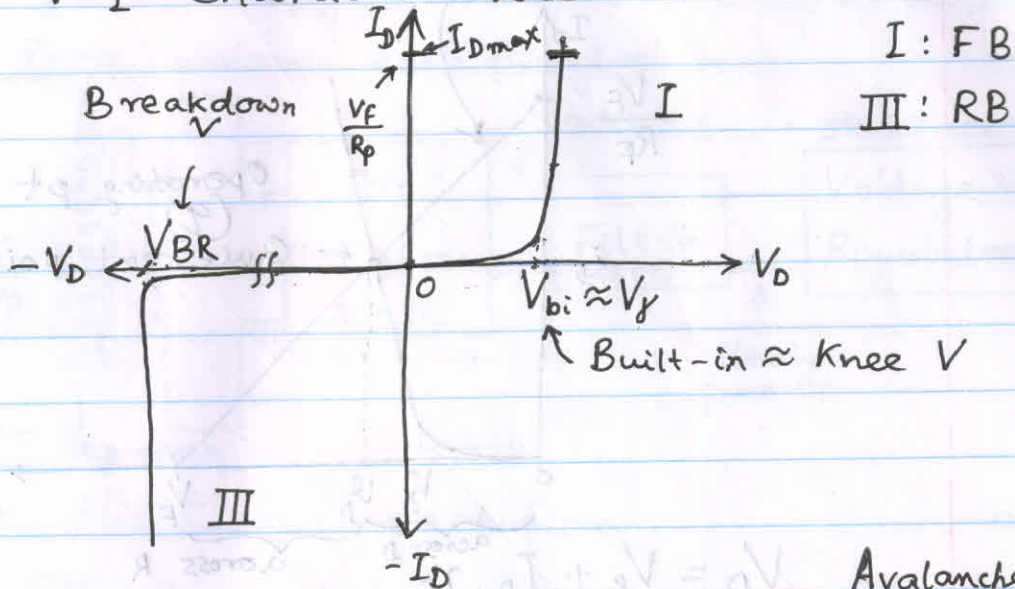 V-I
I_D I_Dmax
I : FB
III : RB
Breakdown
V
V_F / R_p
I
V_BR
-V_D
O
V_D
V_bi ≈ V_γ
Built-in ≈ Knee V
III
-I_D
Avalanche